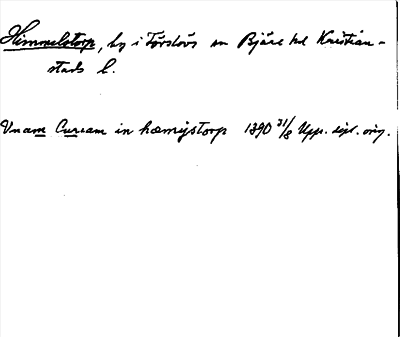 Himmelstorp, by i Förslövs sn Bjäre hd Kristian-
stads l.
Vnam Curiam in hæmijstorp 1390 31/8 Upp. sigl. orig.